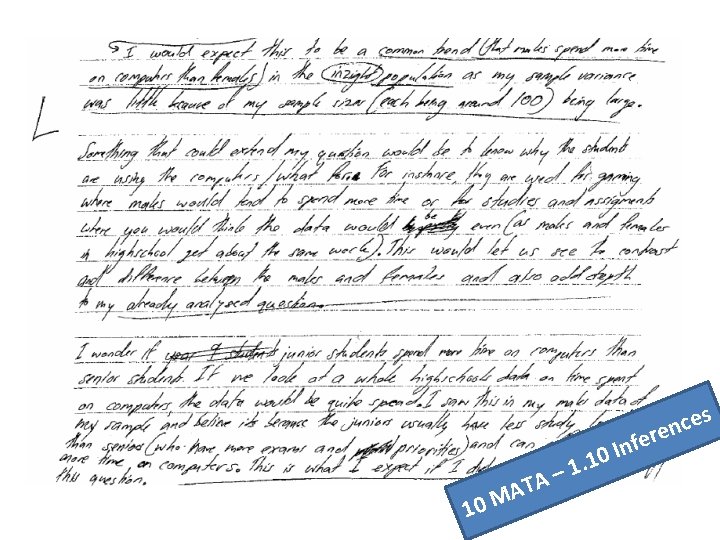 I would expect this to be a common trend (that males spend more time
on computers than females) in the inzight population as my sample variance
was little because of my sample sizes (each being around 100) being large.
Something that could extend my question would be to know why the students
are using the computers/what for. For instance, they are used for gaming
where males would tend to spend more time or for studies and assigments
where you would think the data would be even (as males and females
in highschool get about the same work). This would let us see the contrast
and difference between the males and females and also add depth
to my already analysed question.
I wonder if year 9 students junior students spend more time on computers than
senior students. If we look at a whole highschools data on time spent
on computers, the data would be quite spread. I saw this in my males data of
my sample, and belive its because the juniors usually have less study
than seniors (who have more exams and priorities) and can
more time on computers. This is what I expect if I did
this question.
10 MATA – 1.10 Inferences